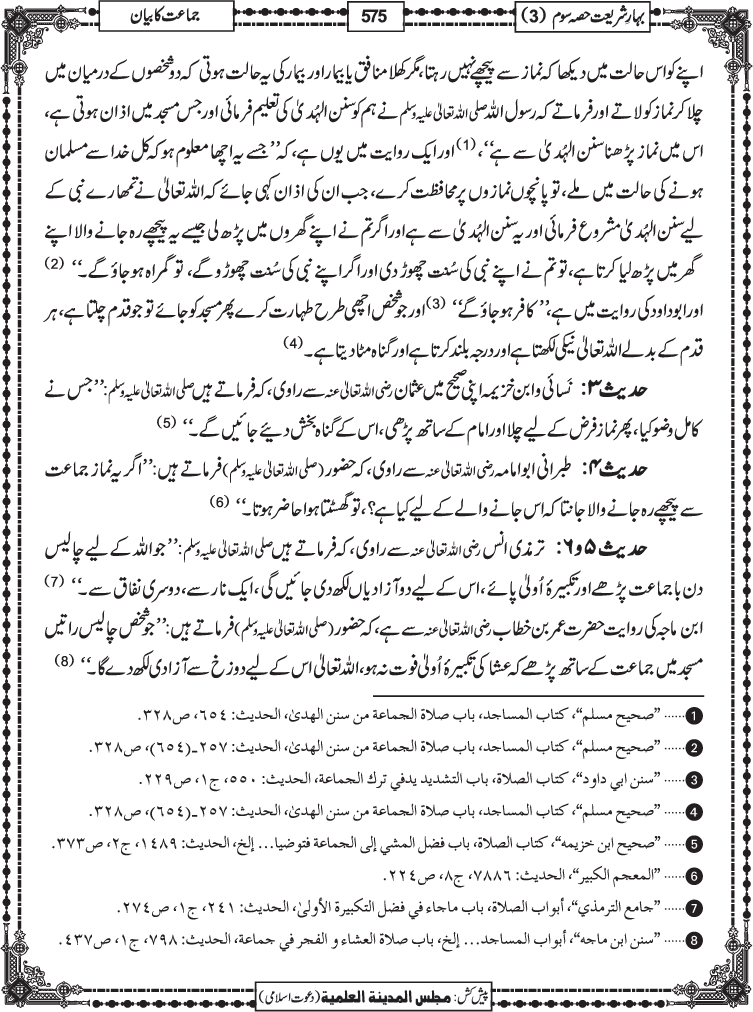 بہارِ شریعت حصہ سوم (3)
575
جماعت کا بیان
اپنے کو اس حالت میں دیکھا کہ نماز سے پیچھے نہیں رہتا، مگر کھلا منافق یا بیمار اور بیمار کی یہ حالت ہوتی کہ دو شخصوں کے درمیان میں
چلا کر نماز کو لاتے اور فرماتے کہ رسول اللہ صلی اللہ تعالیٰ علیہ وسلم نے ہم کو سنن الہُدیٰ کی تعلیم فرمائی اور جس مسجد میں اذان ہوتی ہے،
اس میں نماز پڑھنا سنن الہُدیٰ سے ہے‘‘، (1) اور ایک روایت میں یوں ہے، کہ ’’جسے یہ اچھا معلوم ہو کہ کل خدا سے مسلمان
ہونے کی حالت میں ملے، تو پانچوں نمازوں پر محافظت کرے، جب ان کی اذان کہی جائے کہ اللہ تعالیٰ نے تمھارے نبی کے
لیے سنن الہُدیٰ مشروع فرمائی اور یہ سنن الہُدیٰ سے ہے اور اگر تم نے اپنے گھروں میں پڑھ لی جیسے یہ پیچھے رہ جانے والا اپنے
گھر میں پڑھ لیا کرتا ہے، تو تم نے اپنے نبی کی سُنت چھوڑ دی اور اگر اپنے نبی کی سُنت چھوڑو گے، تو گمراہ ہو جاؤ گے۔‘‘ (2)
اور ابوداود کی روایت میں ہے، ’’کافر ہو جاؤ گے‘‘ (3) اور جو شخص اچھی طرح طہارت کرے پھر مسجد کو جائے تو جو قدم چلتا ہے، ہر
قدم کے بدلے اللہ تعالیٰ نیکی لکھتا ہے اور درجہ بلند کرتا ہے اور گناہ مٹا دیتا ہے۔ (4)
حدیث ۳: نَسائی و ابن خزیمہ اپنی صحیح میں عثمان رضی اللہ تعالیٰ عنہ سے راوی، کہ فرماتے ہیں صلی اللہ تعالیٰ علیہ وسلم: ’’جس نے
کامل وضو کیا، پھر نماز فرض کے لیے چلا اور امام کے ساتھ پڑھی، اس کے گناہ بخش دیے جائیں گے۔‘‘ (5)
حدیث ۴: طبرانی ابو امامہ رضی اللہ تعالیٰ عنہ سے راوی، کہ حضور (صلی اللہ تعالیٰ علیہ وسلم) فرماتے ہیں: ’’اگر یہ نماز جماعت
سے پیچھے رہ جانے والا جانتا کہ اس جانے والے کے لیے کیا ہے؟، تو گھسٹتا ہوا حاضر ہوتا۔‘‘ (6)
حدیث ۵ و ۶: ترمذی انس رضی اللہ تعالیٰ عنہ سے راوی، کہ فرماتے ہیں صلی اللہ تعالیٰ علیہ وسلم: ’’جو اللہ کے لیے چالیس
دن باجماعت پڑھے اور تکبیرۂ اُولیٰ پائے، اس کے لیے دو آزادیاں لکھ دی جائیں گی، ایک نار سے، دوسری نفاق سے۔‘‘ (7)
ابن ماجہ کی روایت حضرت عمر بن خطاب رضی اللہ تعالیٰ عنہ سے ہے، کہ حضور (صلی اللہ تعالیٰ علیہ وسلم) فرماتے ہیں: ’’جو شخص چالیس راتیں
مسجد میں جماعت کے ساتھ پڑھے کہ عشا کی تکبیرۂ اُولیٰ فوت نہ ہو، اللہ تعالیٰ اس کے لیے دوزخ سے آزادی لکھ دے گا۔‘‘ (8)
1 ...... ”صحيح مسلم“، كتاب المساجد، باب صلاة الجماعة من سنن الهدىٰ، الحديث: ٦٥٤، ص٣٢٨.
2 ...... ”صحيح مسلم“، كتاب المساجد، باب صلاة الجماعة من سنن الهدىٰ، الحديث: ٢٥٧-(٦٥٤)، ص٣٢٨.
3 ...... ”سنن ابي داود“، كتاب الصلاة، باب التشديد يدفي ترك الجماعة، الحديث: ٥٥٠، ج١، ص٢٢٩.
4 ...... ”صحيح مسلم“، كتاب المساجد، باب صلاة الجماعة من سنن الهدىٰ، الحديث: ٢٥٧-(٦٥٤)، ص٣٢٨.
5 ...... ”صحيح ابن خزيمه“، كتاب الصلاة، باب فضل المشي إلى الجماعة فتوضيا... إلخ، الحديث: ١٤٨٩، ج٢، ص٣٧٣.
6 ...... ”المعجم الكبير“، الحديث: ٧٨٨٦، ج٨، ص٢٢٤.
7 ...... ”جامع الترمذي“، أبواب الصلاة، باب ماجاء في فضل التكبيرة الأولىٰ، الحديث: ٢٤١، ج١، ص٢٧٤.
8 ...... ”سنن ابن ماجه“، أبواب المساجد... إلخ، باب صلاة العشاء و الفجر في جماعة، الحديث: ٧٩٨، ج١، ص٤٣٧.
پیش کش: مجلس المدينة العلمية (دعوت اسلامی)